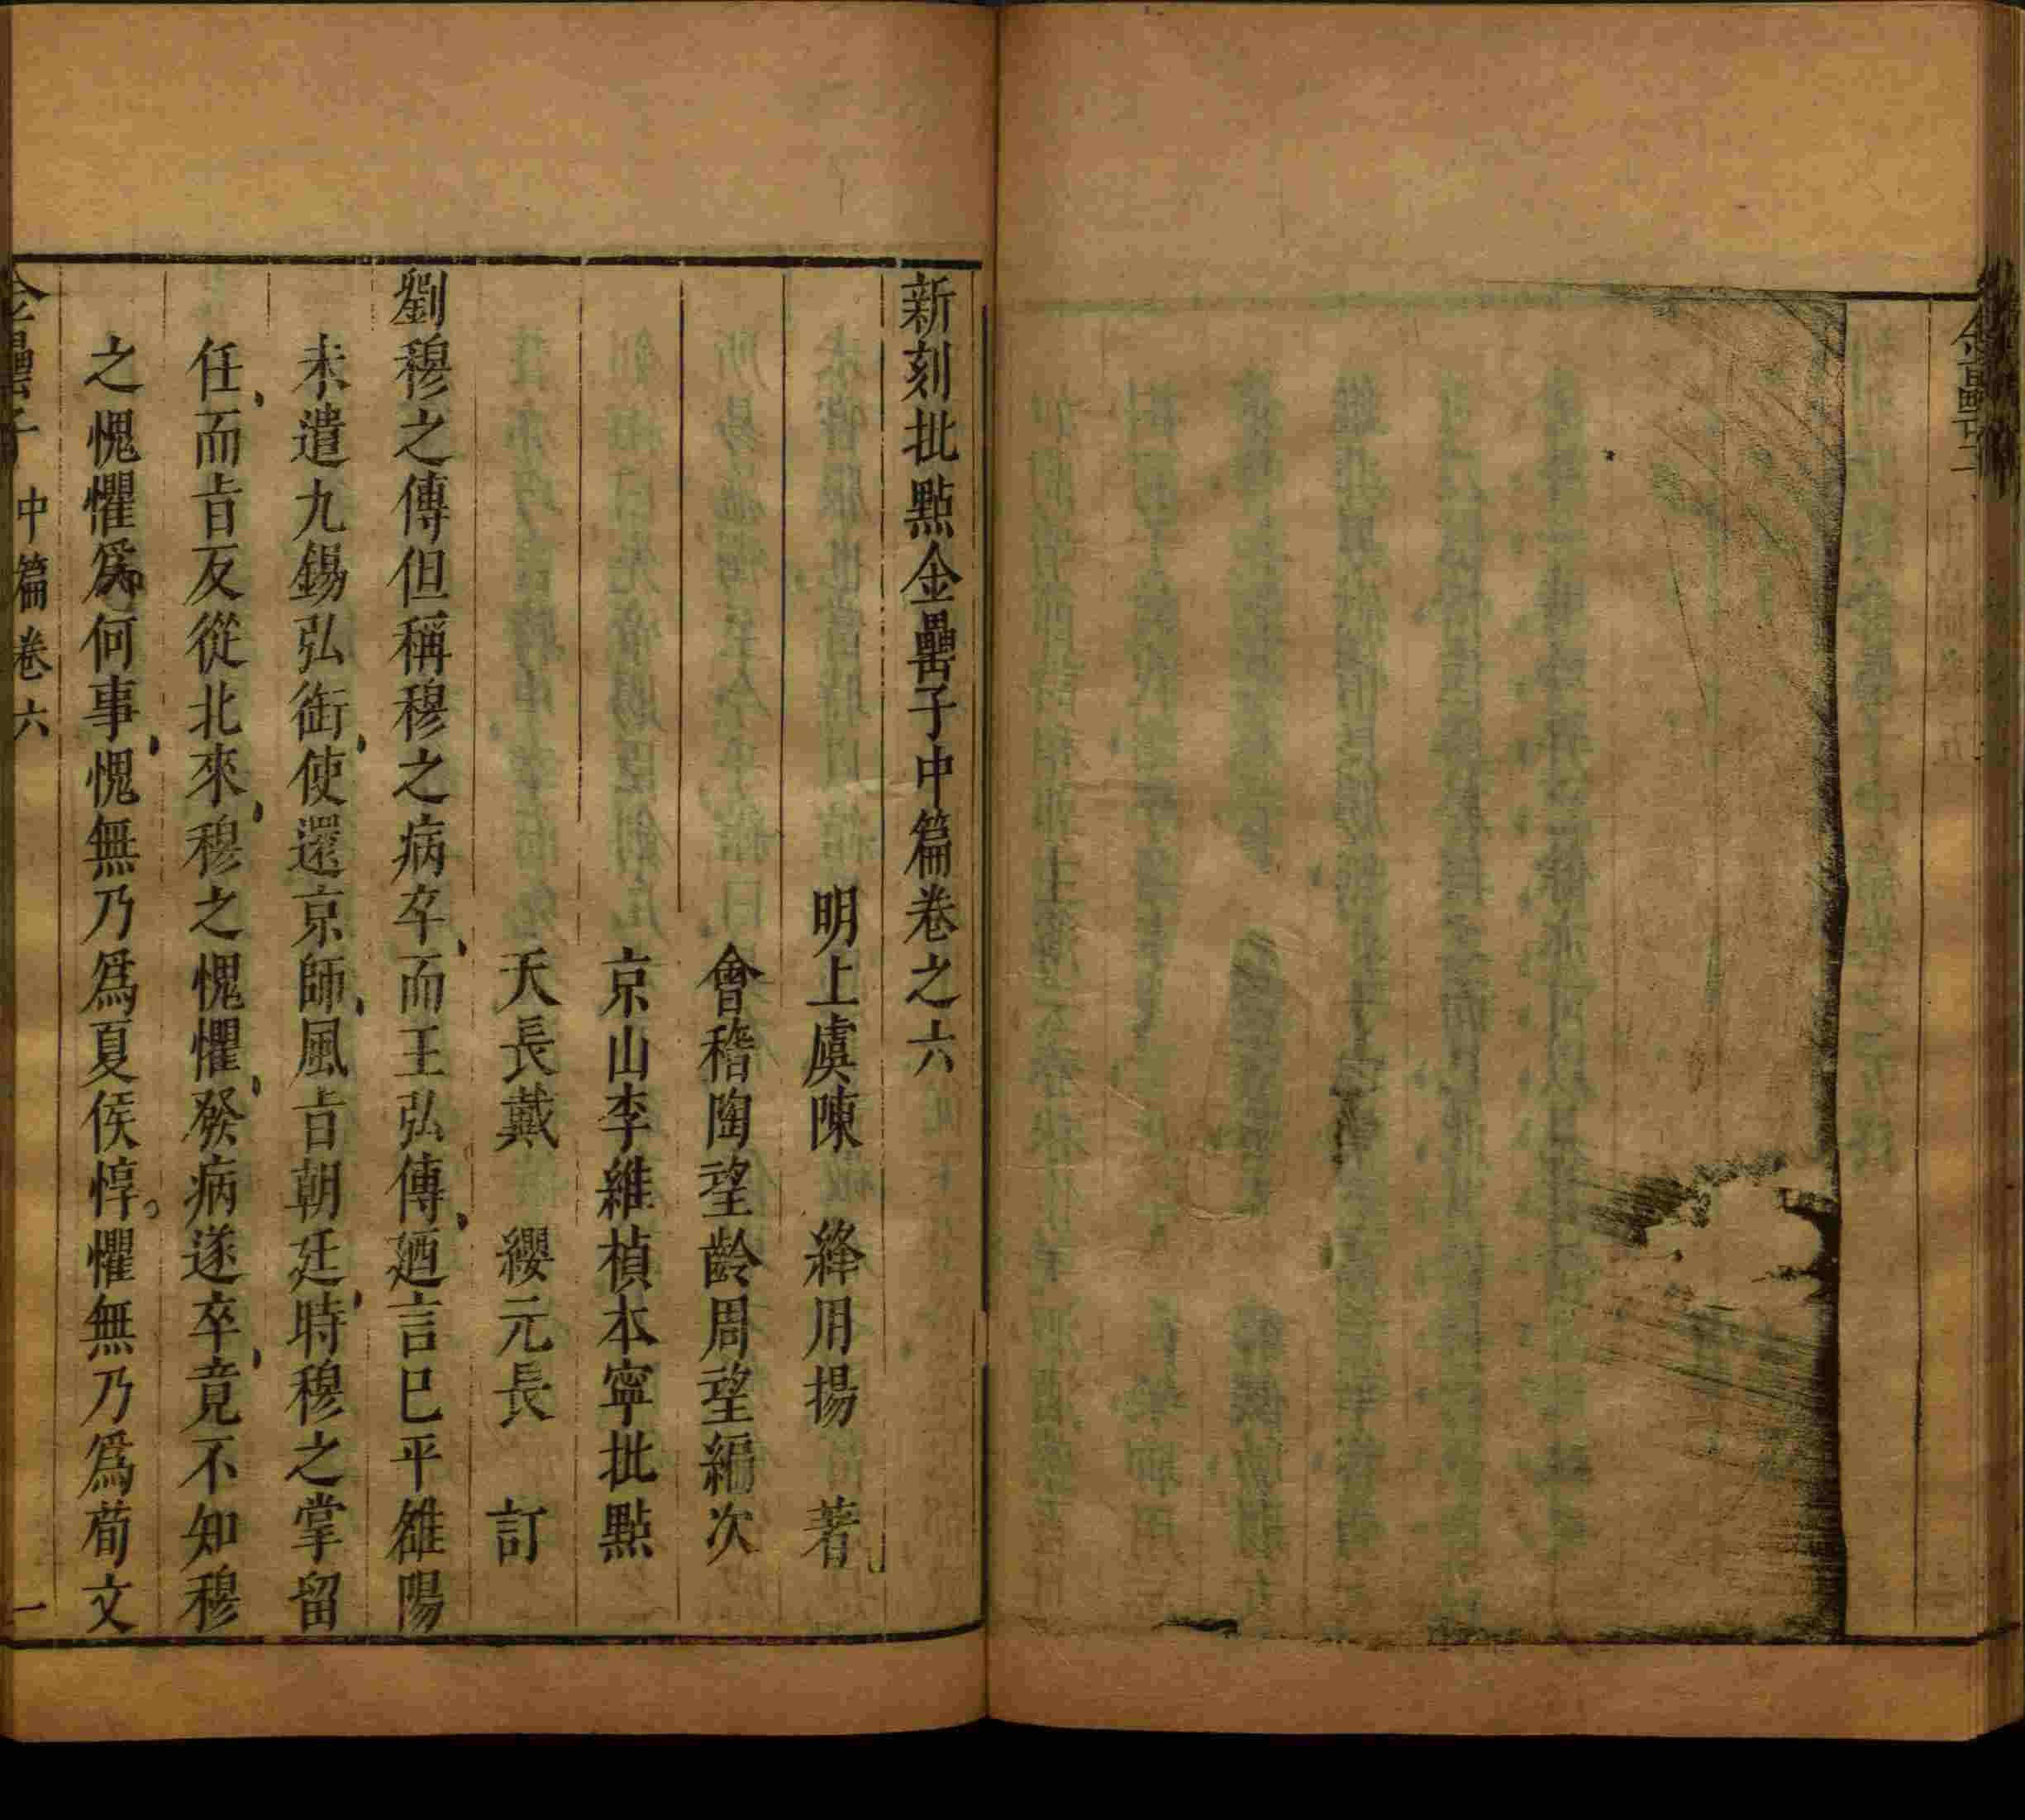 金罍子
新刻批點金罍子中篇卷之六
明上虞陳　絳用揚　著
會稽陶望齡周望編次
京山李維楨本寧批點
天長戴　纓元長　訂
劉穆之傳但稱穆之病卒而王弘傳廼言已平雒陽
未遣九錫弘銜使還京師風㫖朝廷時穆之掌留
任而㫖反從北來穆之愧懼發病遂卒竟不知穆
之愧懼爲何事愧無乃爲夏侯惇。懼無乃爲荀文
金罍子　中篇卷六　一